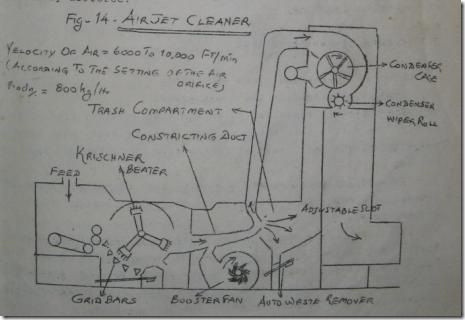 Fig-14- AIR JET CLEANER
VELOCITY OF AIR = 6000 TO 10,000 FT/min
(ACCORDING TO THE SETTING OF THE AIR
ORIFICE)
Prodn = 800 kg/Hr
TRASH COMPARTMENT
CONSTRICTING DUCT
KRISCHNER
BEATER
FEED
CONDENSER
CAGE
CONDENSER
WIPER ROLL
ADJUSTABLE SLOT
GRID BARS
BOOSTER FAN
AUTO WASTE REMOVER